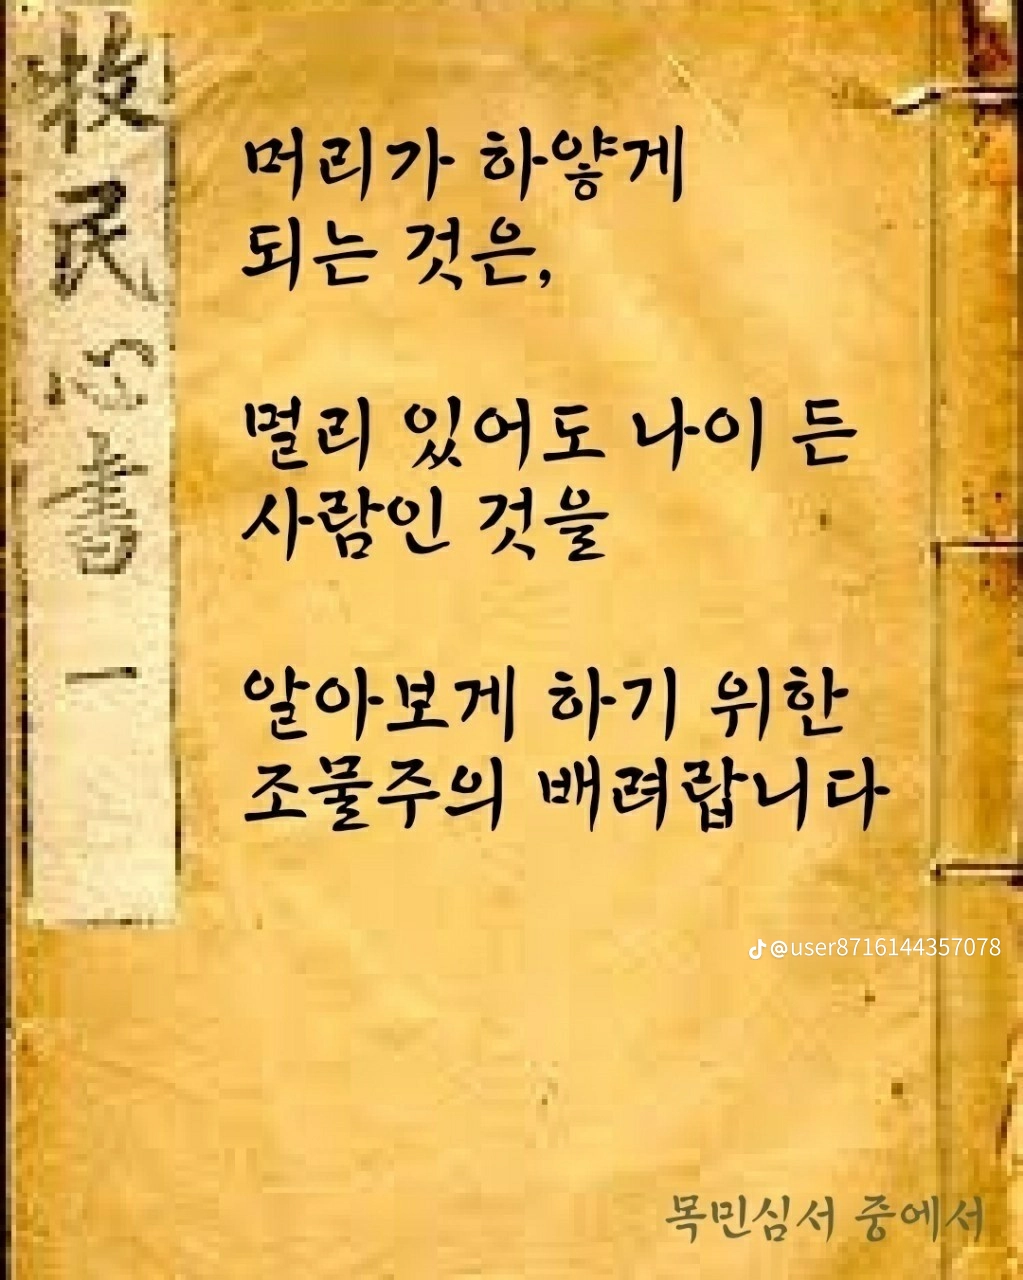 牧民心書 一
머리가 하얗게
되는 것은,
멀리 있어도 나이 든
사람인 것을
알아보게 하기 위한
조물주의 배려랍니다
@user8716144357078
목민심서 중에서